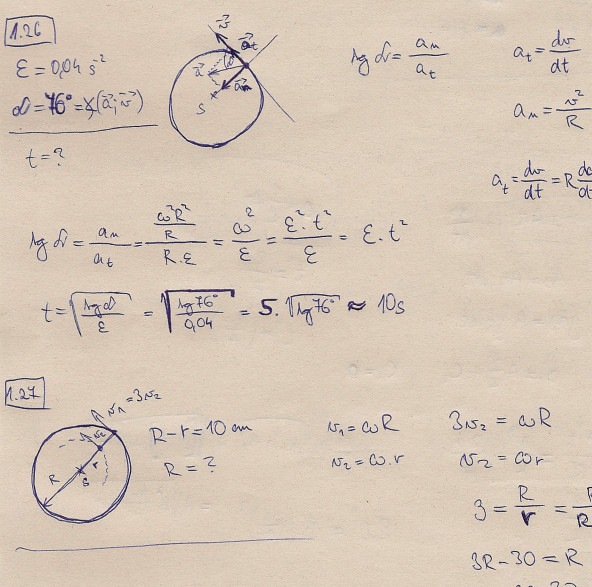 1.26
ε = 0,04 s⁻²
α = 76° = ∢(a⃗; v⃗)
t = ?
v⃗
a⃗t
α
a⃗
a⃗n
S
tg α = an/at
at = dv/dt
an = v²/R
at = dv/dt = R
tg α = an/at = (ω²R²/R)/(R·ε) = ω²/ε = ε²·t²/ε = ε·t²
t = √(tg α/ε) = √(tg 76°/0,04) = 5·√tg 76° ≈ 10s
1.27
v₁ = 3v₂
v₂
R
r
S
R - r = 10 cm
R = ?
v₁ = ωR
v₂ = ω·r
3v₂ = ωR
v₂ = ωr
3 = R/r =
3R - 30 = R